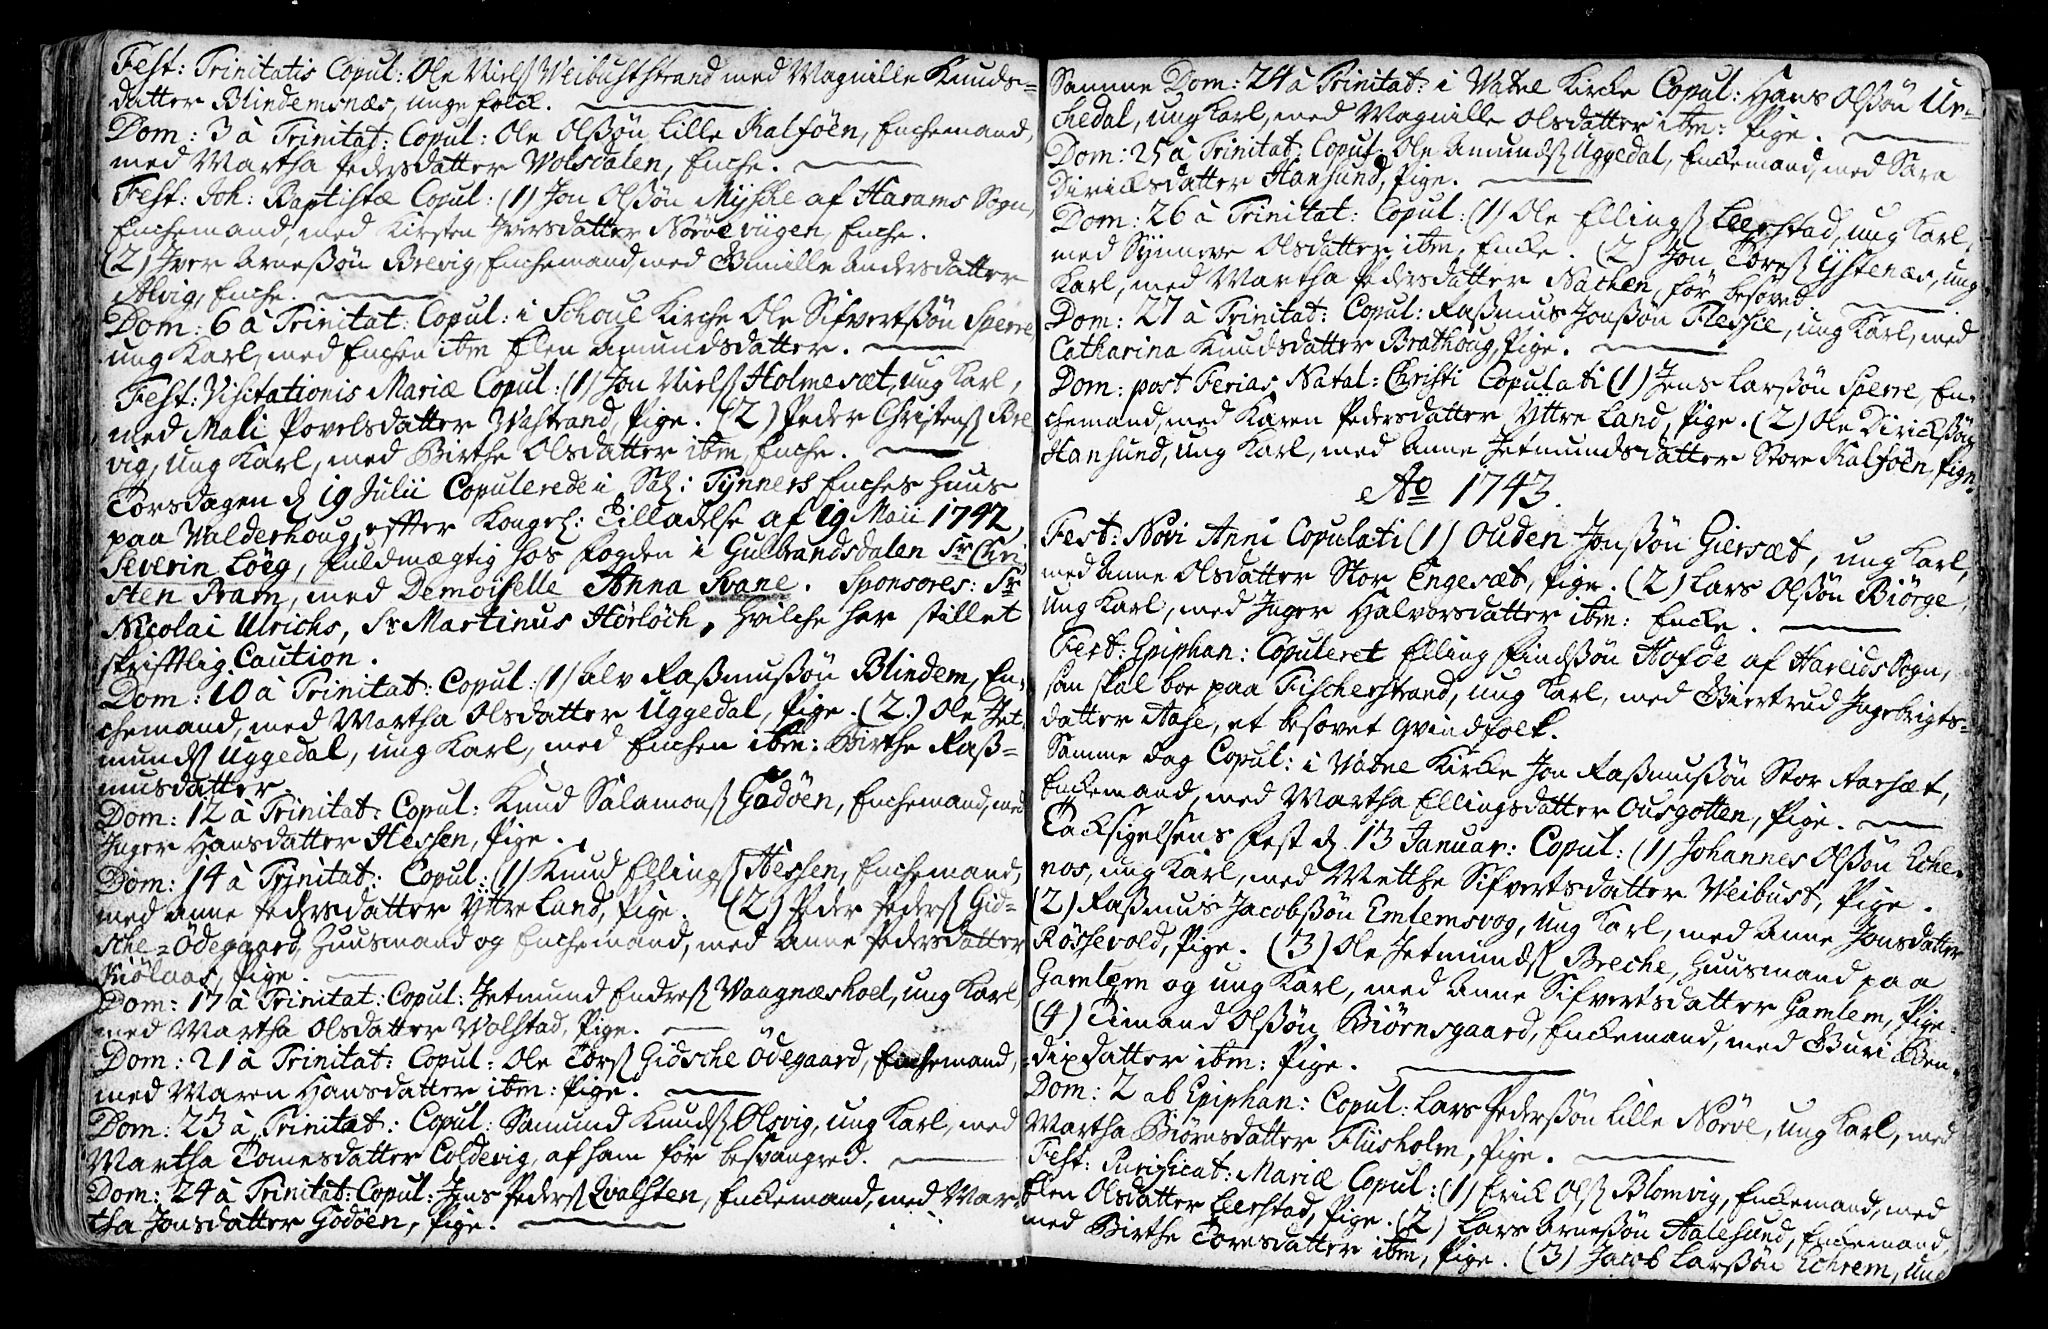 Fest: Trinitatis Copul: Ole Niels Weibuststrand med Magnille Knuds-
datter Blindemsnæs, unge folck.
Dom: 3 à Trinitat: Copul: Ole Olssøn Lille Kalføen, Enchemand,
med Martha Pedersdatter Wolsdalen, Enche.
Fest: Joh: Baptistæ Copul: (1) Jon Olssøn Mysche af Harams Sogn,
Enchemand, med Kirsten Iversdatter Nörve viigen, Enche.
(2) Iver Arnessøn Brevig, Enchemand, med Gunille Andersdatter
Alvig, Enche.
Dom: 6 à Trinitat: Copul: i Schoue Kirche Ole Sifvertssøn Sperre,
ung Karl, med Enchen ibm Elen Amundsdatter.
Fest: Visitationis Mariæ Copul: (1) Jon Niels Holmesæt, ung Karl,
med Mali Povelsdatter Wastrand, Pige. (2) Peder Christens Bre
vig, ung Karl, med Birthe Olsdatter ibm, Enche.
Torsdagen d. 19 Julii Copulerede i Sal: Tynners Enches Huus
paa Walderhoug, effter Kongel: Tilladelse af 19 Maii 1742,
Severin Löeg, Fuldmægtig hos Fogden i Gulbrandsdalen Sr. Chri
sten Pram, med Demoiselle Anna Svane. Sponsores: Sr.
Nicolai Ulrichs, Sr. Martinus Hörlöck, hvilche har stillet
skrifftlig Caution.
Dom: 10 à Trinitat: Copul: (1) Alv Rassmussøn Blindem, En-
chemand, med Martha Olsdatter Uggedal, Pige. (2.) Ole Jet-
munds Uggedal, ung Karl, med Enchen ibm: Birthe Rass-
musdatter.
Dom: 12 à Trinitat: Copul: Knud Salamons Godöen, Enchemand, med
Inger Hansdatter Hessen, Pige.
Dom: 14 à Trinitat: Copul: (1) Knud Ellings Hessen, Enchemand,
med Anne Pedersdatter Yttre Land, Pige. (2) Peder Peders Gid-
sche-Ödegaard, Huusmand og Enchemand, med Anne Pedersdatter
Kiölaas, Pige.
Dom: 17 à Trinitat: Copul: Jetmund Endres Waagnæshoel, ung Karl,
med Martha Olsdatter Wolstad, Pige.
Dom: 21 à Trinitat: Copul: Ole Tors Gidsche Ödegaard, Enchemand,
med Maren Hansdatter ibm: Pige.
Dom: 23 à Trinitat: Copul: Samund Knuds Olsvig, ung Karl, med
Martha Tomesdatter Coldevig, af ham för besvangred.
Dom: 24 à Trinitat: Copul: Jens Peders Qvalsten, Enckemand, med Mar-
tha Jonsdatter Godöen, Pige.
Samme Dom: 24 à Trinitat: i Vatne Kirke Copul: Hans Olssøn Ur-
kedal, ung Karl, med Magnille Olsdatter ibm: Pige.
Dom: 25 à Trinitat: Copul: Ole Amunds Uggedal, Enckemand, med Sara
Diricksdatter Hansund, Pige.
Dom: 26 à Trinitat: Copul: (1) Ole Ellings Leerstad, ung Karl,
med Synneve Olsdatter ibm, Encke. (2) Jon Tores Ystenæs, ung
Karl, med Martha Pedersdatter Nachen, för besöved
Dom: 27 à Trinitat: Copul: Rassmus Jonssøn Flesche, ung Karl, med
Catharina Knudsdatter Brathoug, Pige.
Dom: post Ferias Natal: Christi Copulati (1) Jens Larssøn Sperre, En-
chemand, med Karen Pedersdatter Yttre Land, Pige. (2) Ole Dirickssøn
Hansund, ung Karl, med Anne Jetmundsdatter Store Kalföen, Pige.
Ao 1743.
Fest: Novi Anni Copulati (1) Ouden Jonssøn Giersæt, ung Karl,
med Anne Olsdatter Stor Engesæt, Pige. (2) Lars Olssøn Biörge,
ung Karl, med Inger Halvorsdatter ibm: Encke.
Fest: Epiphan: Copuleret Elling Findssøn Hofde af Hareids Sogn,
som skal boe paa Fischerstrand, ung Karl, med Giertrud Ingebrigts-
datter Aase, et besovet Qvindfolk.
Samme dag Copul: i Vatne Kirke Jon Rassmussøn Stor Aarsæt,
Enckemand, med Martha Ellingsdatter Ousgotten, Pige.
Tacksigelsens Fest d. 13 Januar: Copul: (1) Johannes Olssøn Eche-
nos, ung Karl, med Metthe Sifvertsdatter Weibust, Pige.
(2) Rassmus Jacobssøn Emlemsvog, ung Karl, med Anne Jonsdatter
Rössevold, Pige. (3) Ole Jetmunds Breche, Huusmand paa
Gamlem og ung Karl, med Anne Sifvertsdatter Gamlem, Pige.
(4) Timand Olssøn Biörnsgaard, Enckemand, med Guri Ben-
dixdatter ibm: Pige.
Dom: 2 ab Epiphan: Copul: Lars Pederssøn Lille Nörve, ung Karl, med
Martha Biörnsdatter Fliisholm, Pige.
Fest: Purificat: Mariæ Copul: (1) Erick Ols Blomvig, Enckemand, med
Elen Olsdatter Leerstad, Pige. (2) Lars Arnessøn Aalesund, Enckemand,
med Birthe Toresdatter ibm, Pige. (3) Jacob Larssøn Echrem, ung